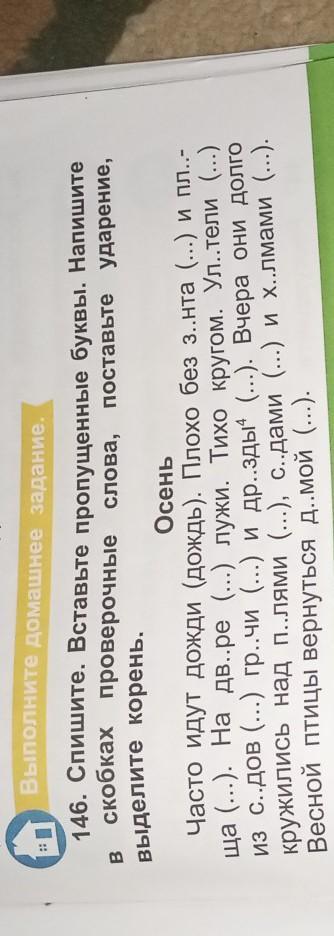 Выполните домашнее задание.
146. Спишите. Вставьте пропущенные буквы. Напишите
в скобках проверочные слова, поставьте ударение,
выделите корень.
Осень
Часто идут дожди (дождь). Плохо без з..нта (...) и пл..-
ща (...). На дв..ре (...) лужи. Тихо кругом. Ул..тели (...)
из с..дов (...) гр..чи (...) и др..зды⁴ (...). Вчера они долго
кружились над п..лями (...), с..дами (...) и х..лмами (...).
Весной птицы вернуться д..мой (...).